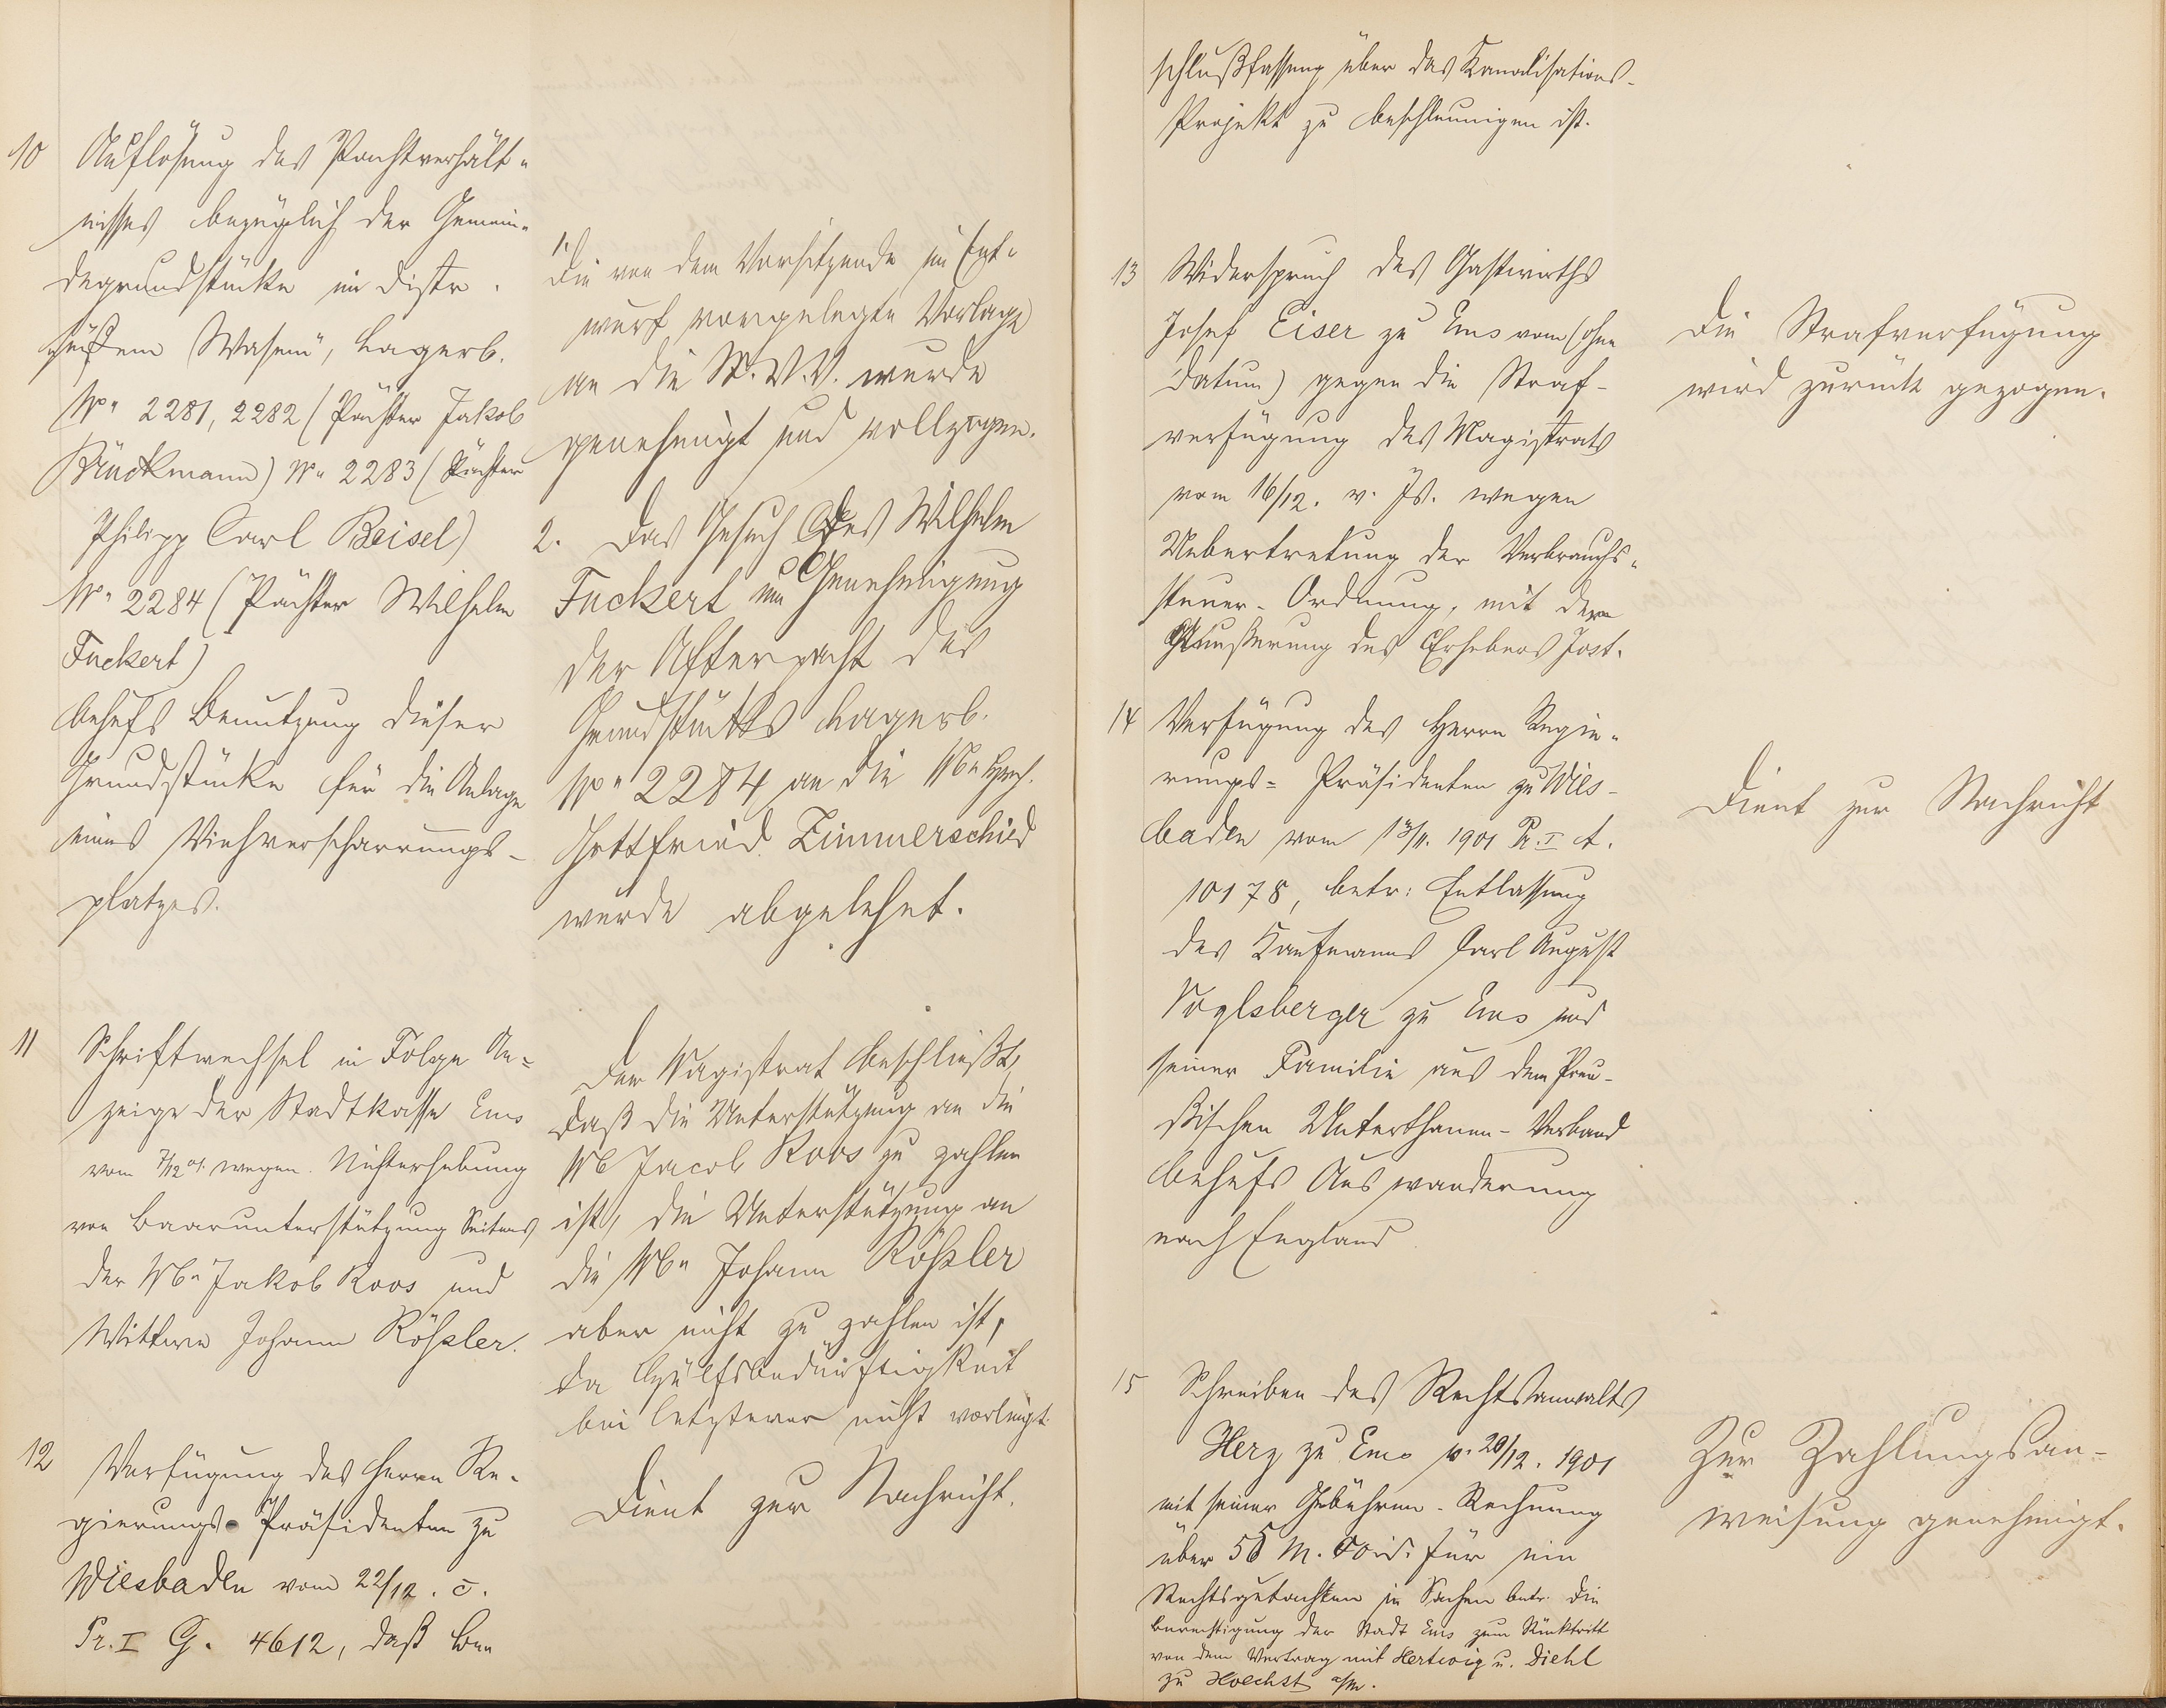 10 Auflösung des Pachtverhält-
nisses bezüglich der Gemein-
degrundstücke im Distr.
Wasem", Lagerb.
No 2281, 2282 (Pächter Jakob
Brückmann) No 2283 (Pächter
Philipp Carl Beisel)
No 2284 (Pächter Wilhelm
Fuckert)
behufs Benutzung dieser
Grundstücke für die Anlage
eines Viehverscharrungs-
platzes.
1. Die von dem Vorsitzende im Ent-
wurf vorgelegte Vorlage
an die St.V.V. wurde
genehmigt und vollzogen.
2. Das Gesuch des Wilhelm
Fuckert um Genehmigung
der Afterpacht des
Grundstücks Lagerb.
No 2284 an die Wwe
Gottfried Zimmerschied
wurde abgelehnt.
11 Schriftwechsel in Folge An-
zeige der Stadtkasse Ems
vom 7/12 01. wegen Nichterhebung
von Baarunterstützung Seitens
der Wwe Jakob Roos und
Wittwe Johann Rößler.
Der Magistrat beschließt,
daß die Unterstützung an die
Ww Jacob Roos zu zahlen
ist, die Unterstützung an
die Wwe Johann Rößler
aber nicht zu zahlen ist,
da Hülfsbedürftigkeit
bei letzterer nicht vorliegt.
12 Verfügung des Herrn Re-
gierungs-Präsidenten zu
Wiesbaden vom 22/12. c.
Pr. I G. 4612, daß Be-
Dient zur Nachricht.
schlußfassung über das Kanalisations-
Projekt zu beschleunigen ist.
13 Widerspruch des Gastwirths
Josef Eiser zu Ems vom (ohne
Datum) gegen die Straf-
verfügung des Magistrats
vom 16/12. v. Js. wegen
Uebertretung der Verbrauchs-
steuer-Ordnung, mit der
Aeußerung des Erhebers Jost.
Die Strafverfügung
wird zurück gezogen.
14 Verfügung des Herrn Regie-
rungs-Präsidenten zu Wies-
baden vom 1901 Pr. I A.
10178, betr: Entlassung
des Kaufmanns Carl August
Voglsberger zu Ems und
seiner Familie aus dem Preu-
ßischen Unterthanen-Verband
behufs Auswanderung
nach England
Dient zur Nachricht
15 Schreiben des Rechtsanwalts
Herz zu Ems v. 20/12. 1901
mit seiner Gebühren-Rechnung
über M. für ein
Rechtsgutachten in Sachen betr. die
Berechtigung der Stadt Ems zum Rücktritt
von dem Vertrag mit Hertwig u. Diehl
zu Hoechst a/M.
Zur Zahlungsan-
weisung genehmigt.